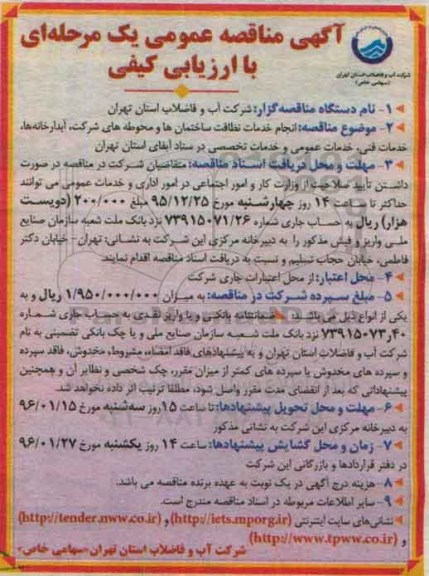 آگهی مناقصه عمومی یک مرحله‌ای
با ارزیابی کیفی
شرکت آب و فاضلاب استان تهران
(سهامی خاص)
۱- نام دستگاه مناقصه‌گزار: شرکت آب و فاضلاب استان تهران
۲- موضوع مناقصه: انجام خدمات نظافت ساختمان ها و محوطه های شرکت، آبدارخانه‌ها،
خدمات فنی، خدمات عمومی و خدمات تخصصی در ستاد آبفای استان تهران
۳- مهلت و محل دریافت اسناد مناقصه: متقاضیان شرکت در مناقصه در صورت
داشتن تأیید صلاحیت از وزارت کار و امور اجتماعی در امور اداری و خدمات عمومی می توانند
حداکثر تا ساعت ۱۴ روز چهارشنبه مورخ ۹۵/۱۲/۲۵ مبلغ ۲۰۰/۰۰۰ (دویست
هزار) ریال به حساب جاری شماره ۷۳۹۱۵۰۷۱/۲۶ نزد بانک ملت شعبه سازمان صنایع
ملی واریز و فیش مذکور را به دبیرخانه مرکزی این شرکت به نشانی: تهران - خیابان دکتر
فاطمی، خیابان حجاب تسلیم و نسبت به دریافت اسناد مناقصه اقدام نمایند.
۴- محل اعتبار: از محل اعتبارات جاری شرکت
۵- مبلغ سپرده شرکت در مناقصه: به میزان ۱/۹۵۰/۰۰۰/۰۰۰ ریال و به
یکی از انواع ذیل می باشد: ضمانتنامه بانکی و یا واریز نقدی به حساب جاری شماره
۷۳۹۱۵۰۷۳٫۴۰ نزد بانک ملت شعبه سازمان صنایع ملی و یا چک بانکی تضمینی به نام
شرکت آب و فاضلاب استان تهران و به پیشنهادهای فاقد امضاء، مشروط، مخدوش، فاقد سپرده
و سپرده های مخدوش یا سپرده های کمتر از میزان مقرر، چک شخصی و نظایر آن و همچنین
پیشنهاداتی که بعد از انقضای مدت مقرر واصل شود، مطلقا ترتیب اثر داده نخواهد شد.
۶- مهلت و محل تحویل پیشنهادها: تا ساعت ۱۵ روز سه‌شنبه مورخ ۹۶/۰۱/۱۵
به دبیرخانه مرکزی این شرکت به نشانی مذکور
۷- زمان و محل گشایش پیشنهادها: ساعت ۱۴ روز یکشنبه مورخ ۹۶/۰۱/۲۷
در دفتر قراردادها و بازرگانی این شرکت
۸- هزینه درج آگهی در یک نوبت به عهده برنده مناقصه می باشد.
۹- سایر اطلاعات مربوطه در اسناد مناقصه مندرج است.
نشانی‌های سایت اینترنتی (http://iets.mporg.ir) و (http://tender.nww.co.ir)
و (http://www.tpww.co.ir)
شرکت آب و فاضلاب استان تهران «سهامی خاص»